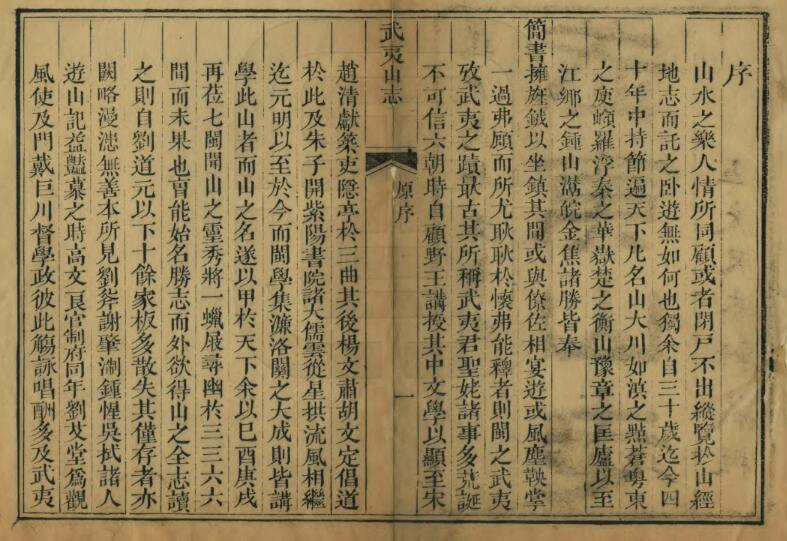 序
山水之樂人情所同顧或者閉戶不出縱覽於山經
地志而託之臥遊無如何也獨余自三十歲迄今四
十年中持節遍天下凡名山大川如滇之點蒼粵東
之庾嶺羅浮秦之華嶽楚之衡山豫章之匡廬以至
江鄉之鍾山潛皖金焦諸勝皆奉
簡書擁旌鉞以坐鎮其間或與僚佐相宴遊或風塵鞅掌
一過弗顧而所尤耿耿於懷弗能釋者則閩之武夷
攷武夷之蹟最古其所稱武夷君聖姥諸事多荒誕
不可信六朝時自顧野王講授其中文學以顯至宋
武夷山志
原序
一
趙清獻築吏隱亭於三曲其後楊文肅胡文定倡道
於此及朱子開紫陽書院諸大儒雲從星拱流風相繼
迄元明以至於今而閩學集濂洛關之大成則皆講
學此山者而山之名遂以甲於天下余以己酉庚戌
再蒞七閩閩山之靈秀將一蠟屐尋幽於三三六六
間而未果也曹能始名勝志而外欲得山之全志讀
之則自劉道元以下十餘家板多散失其僅存者亦
闕略漫漶無善本所見劉斧謝肇淛鍾惺吳拭諸人
遊山記益豔慕之時高文良官制府同年劉艾堂爲觀
風使及門戴巨川督學政彼此觴詠唱酬多及武夷